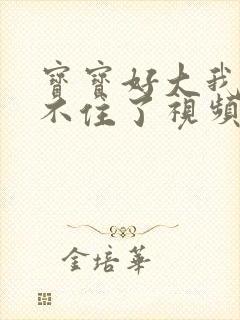 寶寶好大我
不住了視頻
金培華